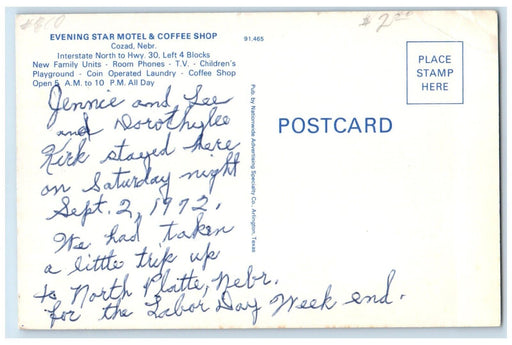 $2.00
EVENING STAR MOTEL & COFFEE SHOP
91,465
Cozad, Nebr.
Interstate North to Hwy. 30. Left 4 Blocks
New Family Units - Room Phones - T.V. - Children's
Playground - Coin Operated Laundry - Coffee Shop
Open 5 A.M. to 10 P.M. All Day
PLACE
STAMP
HERE
Jennie and Lee
and Dorothylee
Kirk stayed here
on Saturday night
Sept. 2, 1972.
We had taken
a little trip up
to North Platte, Nebr.
for the Labor Day Week end.
Pub by Nationwide Advertising Specialty Co., Arlington, Texas
POSTCARD